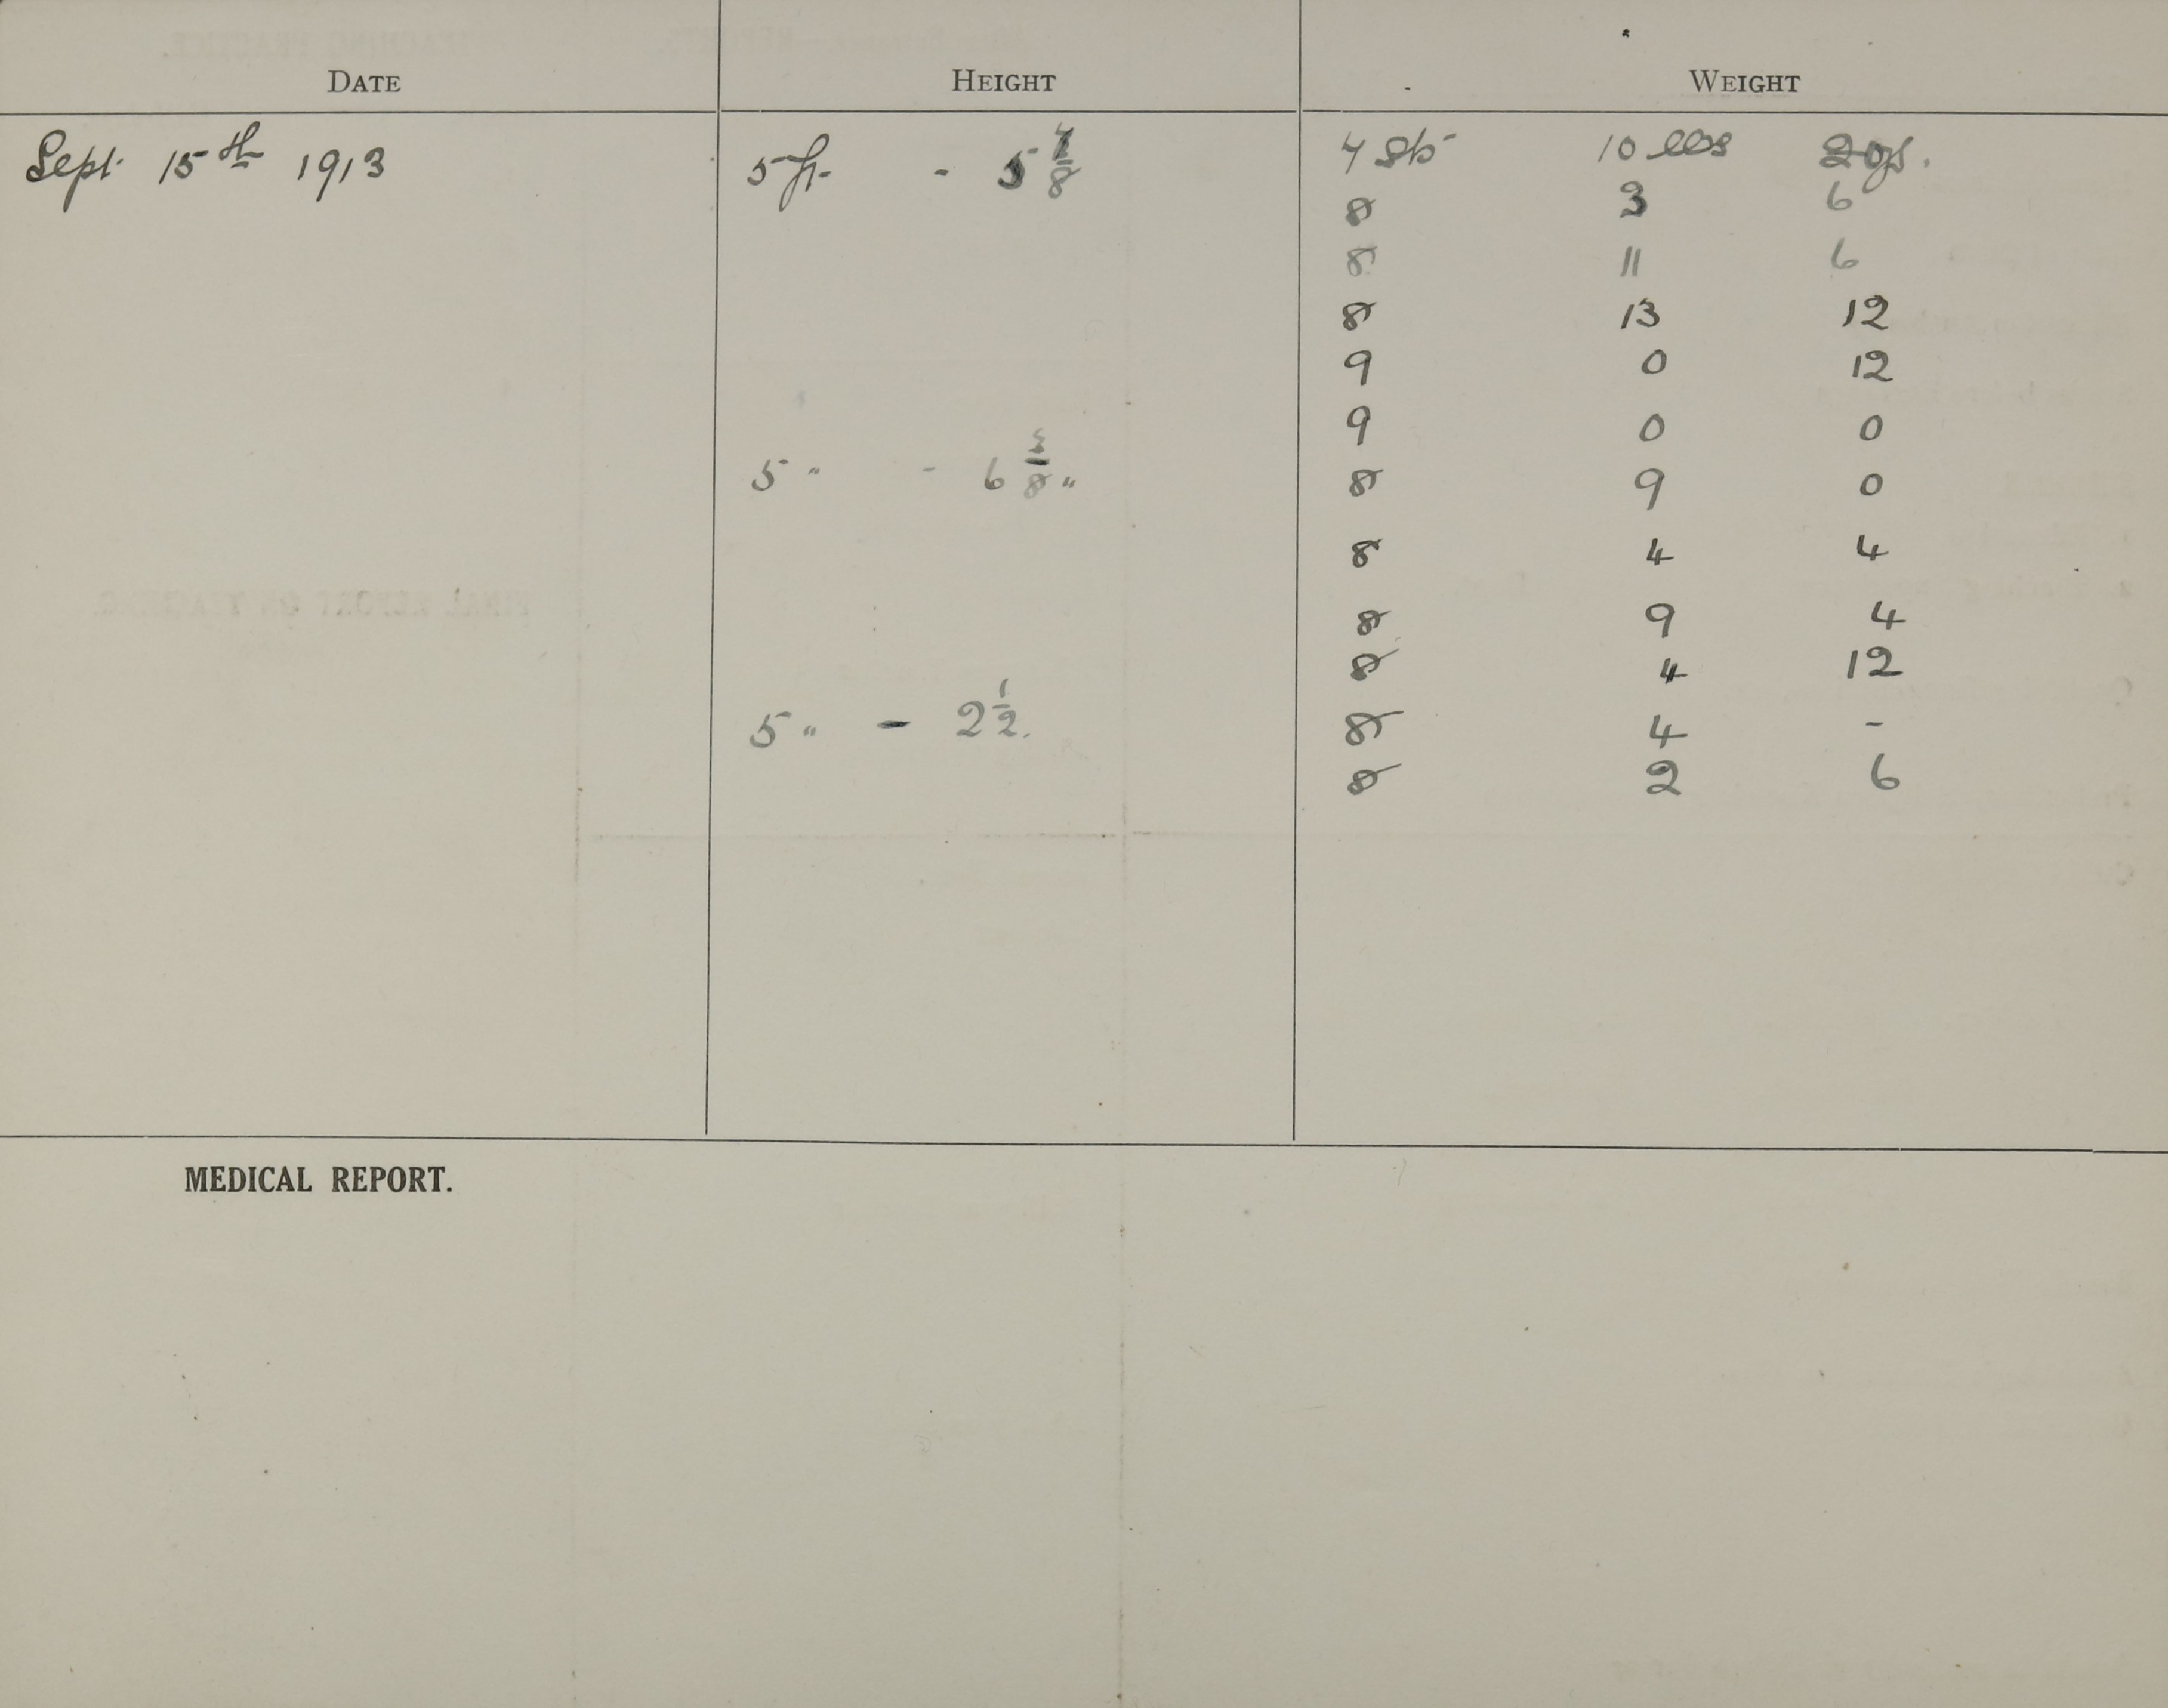 DATE HEIGHT WEIGHT
Sept. 15th 1913 5 ft. - 5 7/8 7 st 10 lbs 2 ozs.
8 3 6
8 11 6
8 13 12
9 0 12
9 0 0
5 " - 6 "
8 9 0
8 4 4
8 9 4
8 4 12
5 " - 2 1/2.
8 4 -
8 2 6
MEDICAL REPORT.